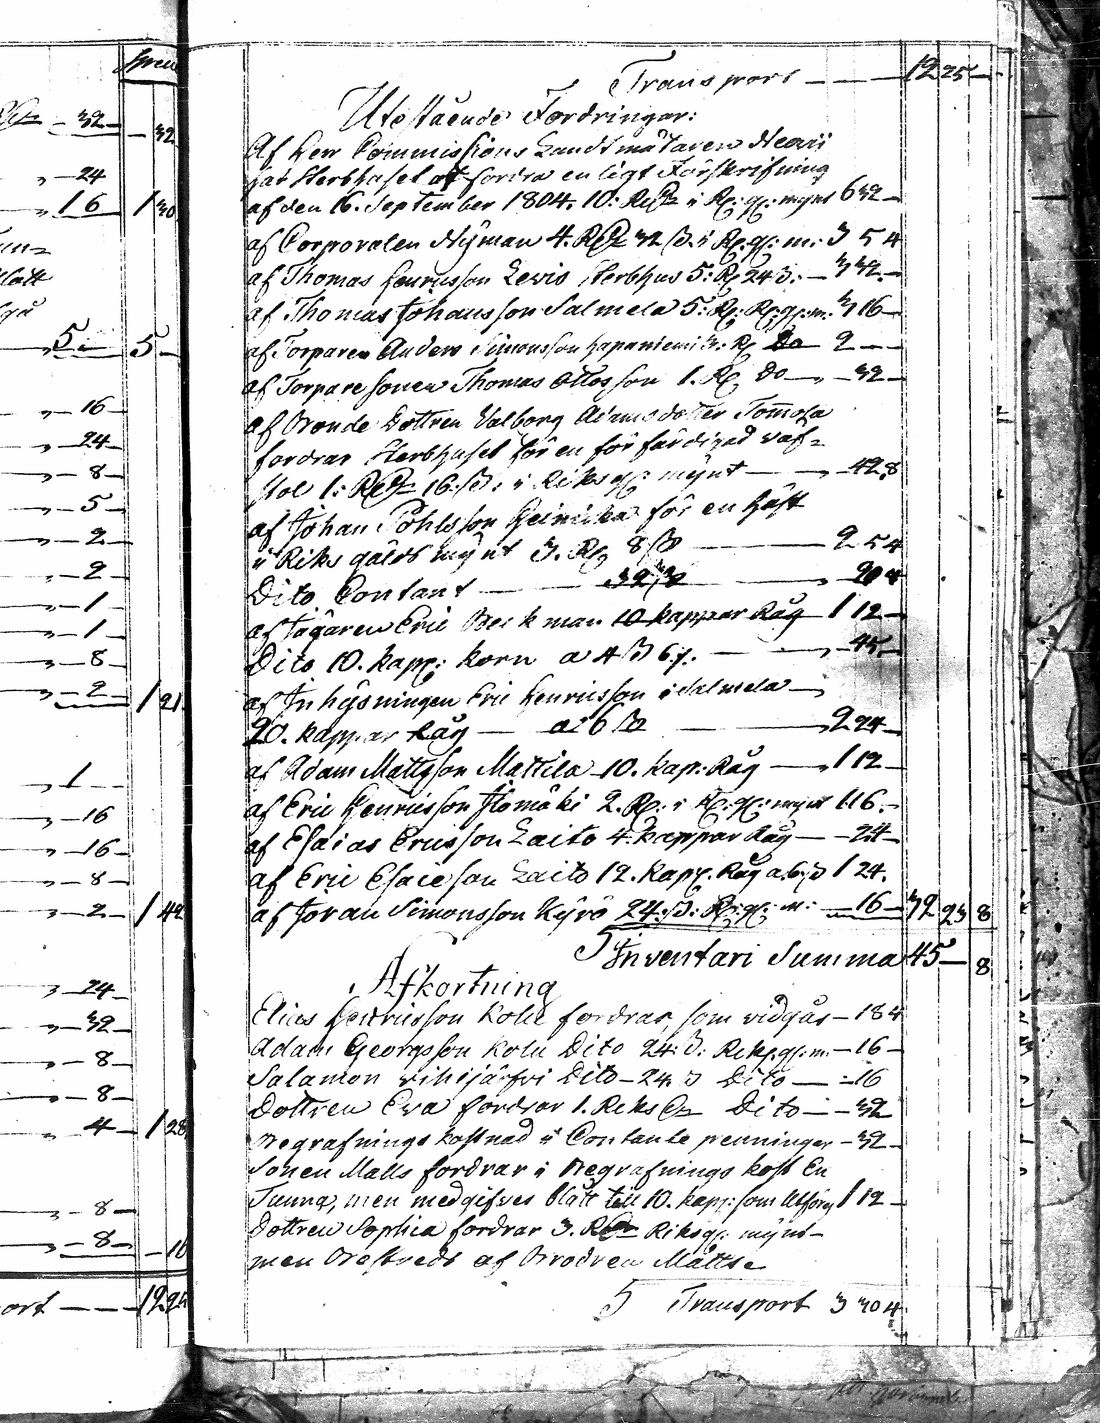 Spec
32 - 32
24
16 1 30
5 5 -
16
24
8
5
2
2
1
1
8
2 1 21
1 - -
16
16
8
2 1 42
24
32
8
8
4 1 28
8
8 - 16
ort — 12 25
Transport — 12 25 —
Utestående Fordringar:
Af Herr Commissions Landtmätaren
har Sterbhuset at fordra enligt Förskrifning
af den 16. September 1804. 10: i Rgs: mynt 6 32 —
af Corporalen Nyman 4. 32 ß. i Rgs: m: 3 5 4
af Thomas Henricsson Lewis Sterbhus 5: Rd 24 ß: — 3 32 —
af Thomas Johansson Salmela 5: Rd. Rgs: m: 3 16 —
af Torparen Anders Simonsson Hapaniemi 3: Rd Do 2 — —
af Torpare Sonen Thomas Ottosson 1. Rd Do — 32 —
af Bonde Dottren Valborg Adamsdotter Tommola
fordrar Sterbhuset för en för färdigad väf-
stol 1: Rd 16: ß: i Riksgs: mynt — 42 8
af Johan Påhlsson Heinicka för en Häst
i Riks gälds mynt 3. Rd 8 ß — 2 5 4
Dito Contant — 32 ß —
af Jägaren Eric Beckman 10 kappar Råg 1 12 —
Dito 10. kapp: korn a 4 ß 6 — 45 —
af Inhysningen Eric Henricsson i Salmela —
20. kappar Råg — a 6 ß — 2 24 —
af Adam Mattsson Mattila 10. kap: Råg — 1 12 —
af Eric Henricsson Ylömäki 2. Rd: i Rgs: mynt 1 16 —
af Esaias Ericsson Laito 4. kappar Råg — 24 —
af Eric Esaiesson Laito 12. kapp. Råg a 6 ß 1 24.
af Joran Simonsson Kyrö 24: ß: Rgs: m: — 16 — 32 23 8
Inventarii Summa 45 — 8
Afkortning
Elias Henricsson Kolu fordrar, som vidgås — 18 4
Adam Georgsson Kolu Dito 24: ß: Riksgs: m: — 16 —
Salamon Dito — 24 ß Dito — 16
Dottren Eva fordrar 1. Riks Dito — 32
Begrafnings kostnad i Contante penningar — 32 —
Sonen Matts fordrar i Begrafnings kost En
Tunna, men medgifves blått till 10. kapp: som 1 12 —
Dottren Sophia fordrar 3. Riksgs: mynt —
men Bestreds af Brodren Matts
Transport 3 30 4